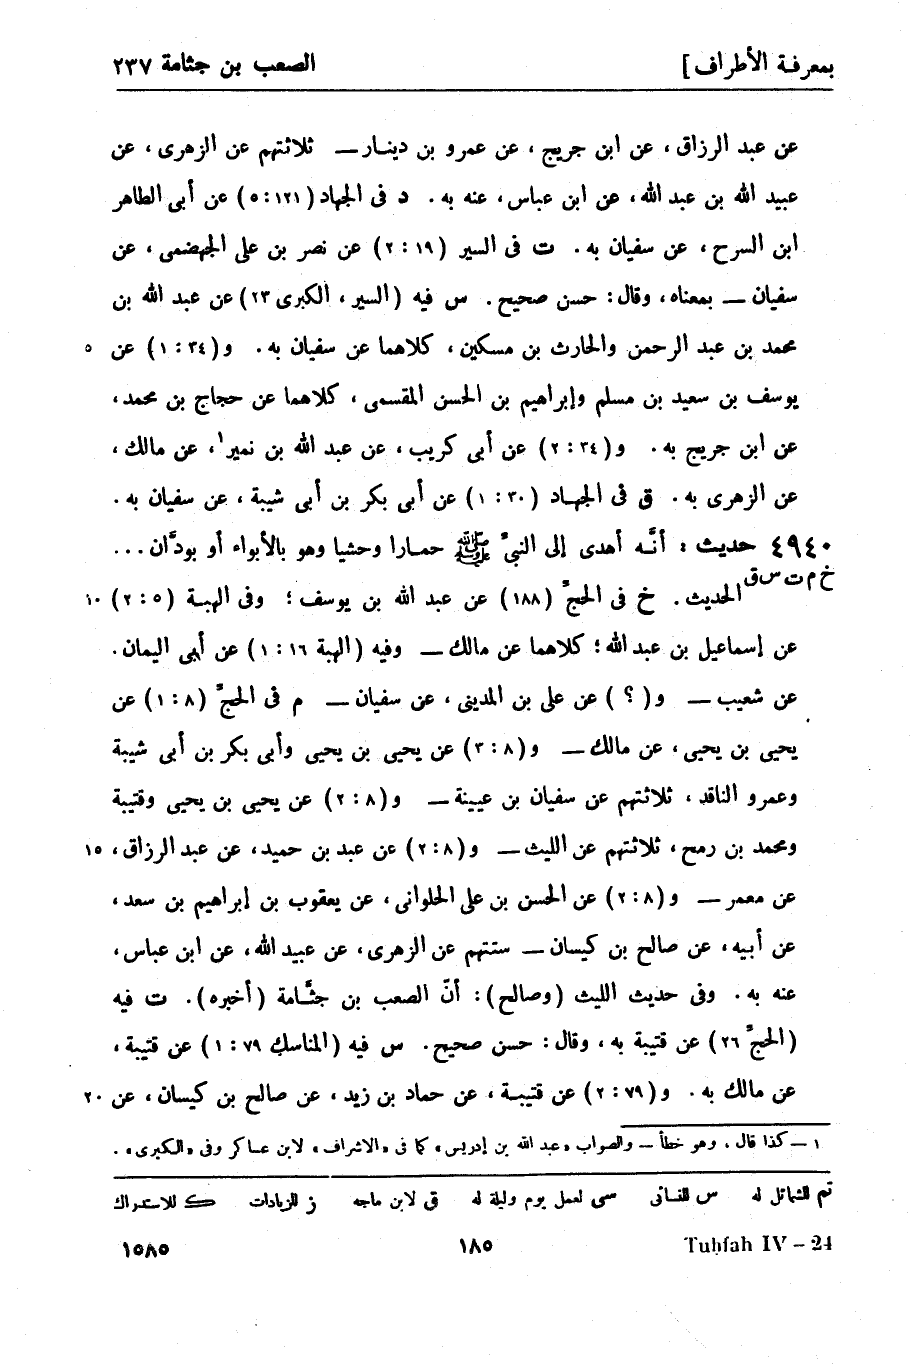 بمعرفة الأطراف] الصعب بن جثامة ٢٣٧
عن عبد الرزاق، عن ابن جريج، عن عمرو بن دينار — ثلاثتهم عن الزهرى، عن
عبيد الله بن عبد الله، عن ابن عباس، عنه به. د فى الجهاد (١٢١ : ٥) عن أبى الطاهر
ابن السرح، عن سفيان به. ت فى السير (١٩ : ٢) عن نصر بن على الجهضمى، عن
سفيان — بمعناه، وقال: حسن صحيح. س فيه (السير، الكبرى ٢٣) عن عبد الله بن
محمد بن عبد الرحمن والحارث بن مسكين، كلاهما عن سفيان به. و(٣٤ : ١) عن ٥
يوسف بن سعيد بن مسلم وإبراهيم بن الحسن المقسمى، كلاهما عن حجاج بن محمد،
عن ابن جريج به. و(٣٤ : ٢) عن أبى كريب، عن عبد الله بن نمير١، عن مالك،
عن الزهرى به. ق فى الجهاد (٣٠ : ١) عن أبى بكر بن أبى شيبة، عن سفيان به.
٤٩٤٠ حديث : أنَّه أهدى إلى النبىّ ﷺ حمارا وحشيا وهو بالأبواء أو بودَّان ...
خ م ت س ق الحديث. خ فى الحجّ (١٨٨) عن عبد الله بن يوسف؛ وفى الهبة (٥ : ٢) ١٠
عن إسماعيل بن عبد الله؛ كلاهما عن مالك — وفيه (الهبة ١٦ : ١) عن أبى اليمان.
عن شعيب — و(؟) عن على بن المدينى، عن سفيان — م فى الحجّ (٨ : ١) عن
يحيى بن يحيى، عن مالك — و(٨ : ٣) عن يحيى بن يحيى وأبى بكر بن أبى شيبة
وعمرو الناقد، ثلاثتهم عن سفيان بن عيينة — و(٨ : ٢) عن يحيى بن يحيى وقتيبة
ومحمد بن رمح، ثلاثتهم عن الليث — و(٨ : ٢) عن عبد بن حميد، عن عبد الرزاق، ١٥
عن معمر — و(٨ : ٢) عن الحسن بن على الحلوانى، عن يعقوب بن إبراهيم بن سعد،
عن أبيه، عن صالح بن كيسان — ستتهم عن الزهرى، عن عبيد الله، عن ابن عباس،
عنه به. وفى حديث الليث (وصالح): أنّ الصعب بن جثَّامة (أخبره). ت فيه
(الحجّ ٢٦) عن قتيبة به، وقال: حسن صحيح. س فيه (المناسك ٧٩ : ١) عن قتيبة،
عن مالك به. و(٧٩ : ٢) عن قتيبة، عن حماد بن زيد، عن صالح بن كيسان، عن ٢٠
١ — كذا قال، وهو خطأ — والصواب «عبد الله بن إدريس» كما فى «الاشراف» لابن عساكر وفى «الكبرى».
تم للشمائل له س للنسائى سى لعمل يوم وليلة له ق لابن ماجه ز للزيادات ك للاستدراك
Tuḥfah IV – 24 ١٨٥ ١٥٨٥